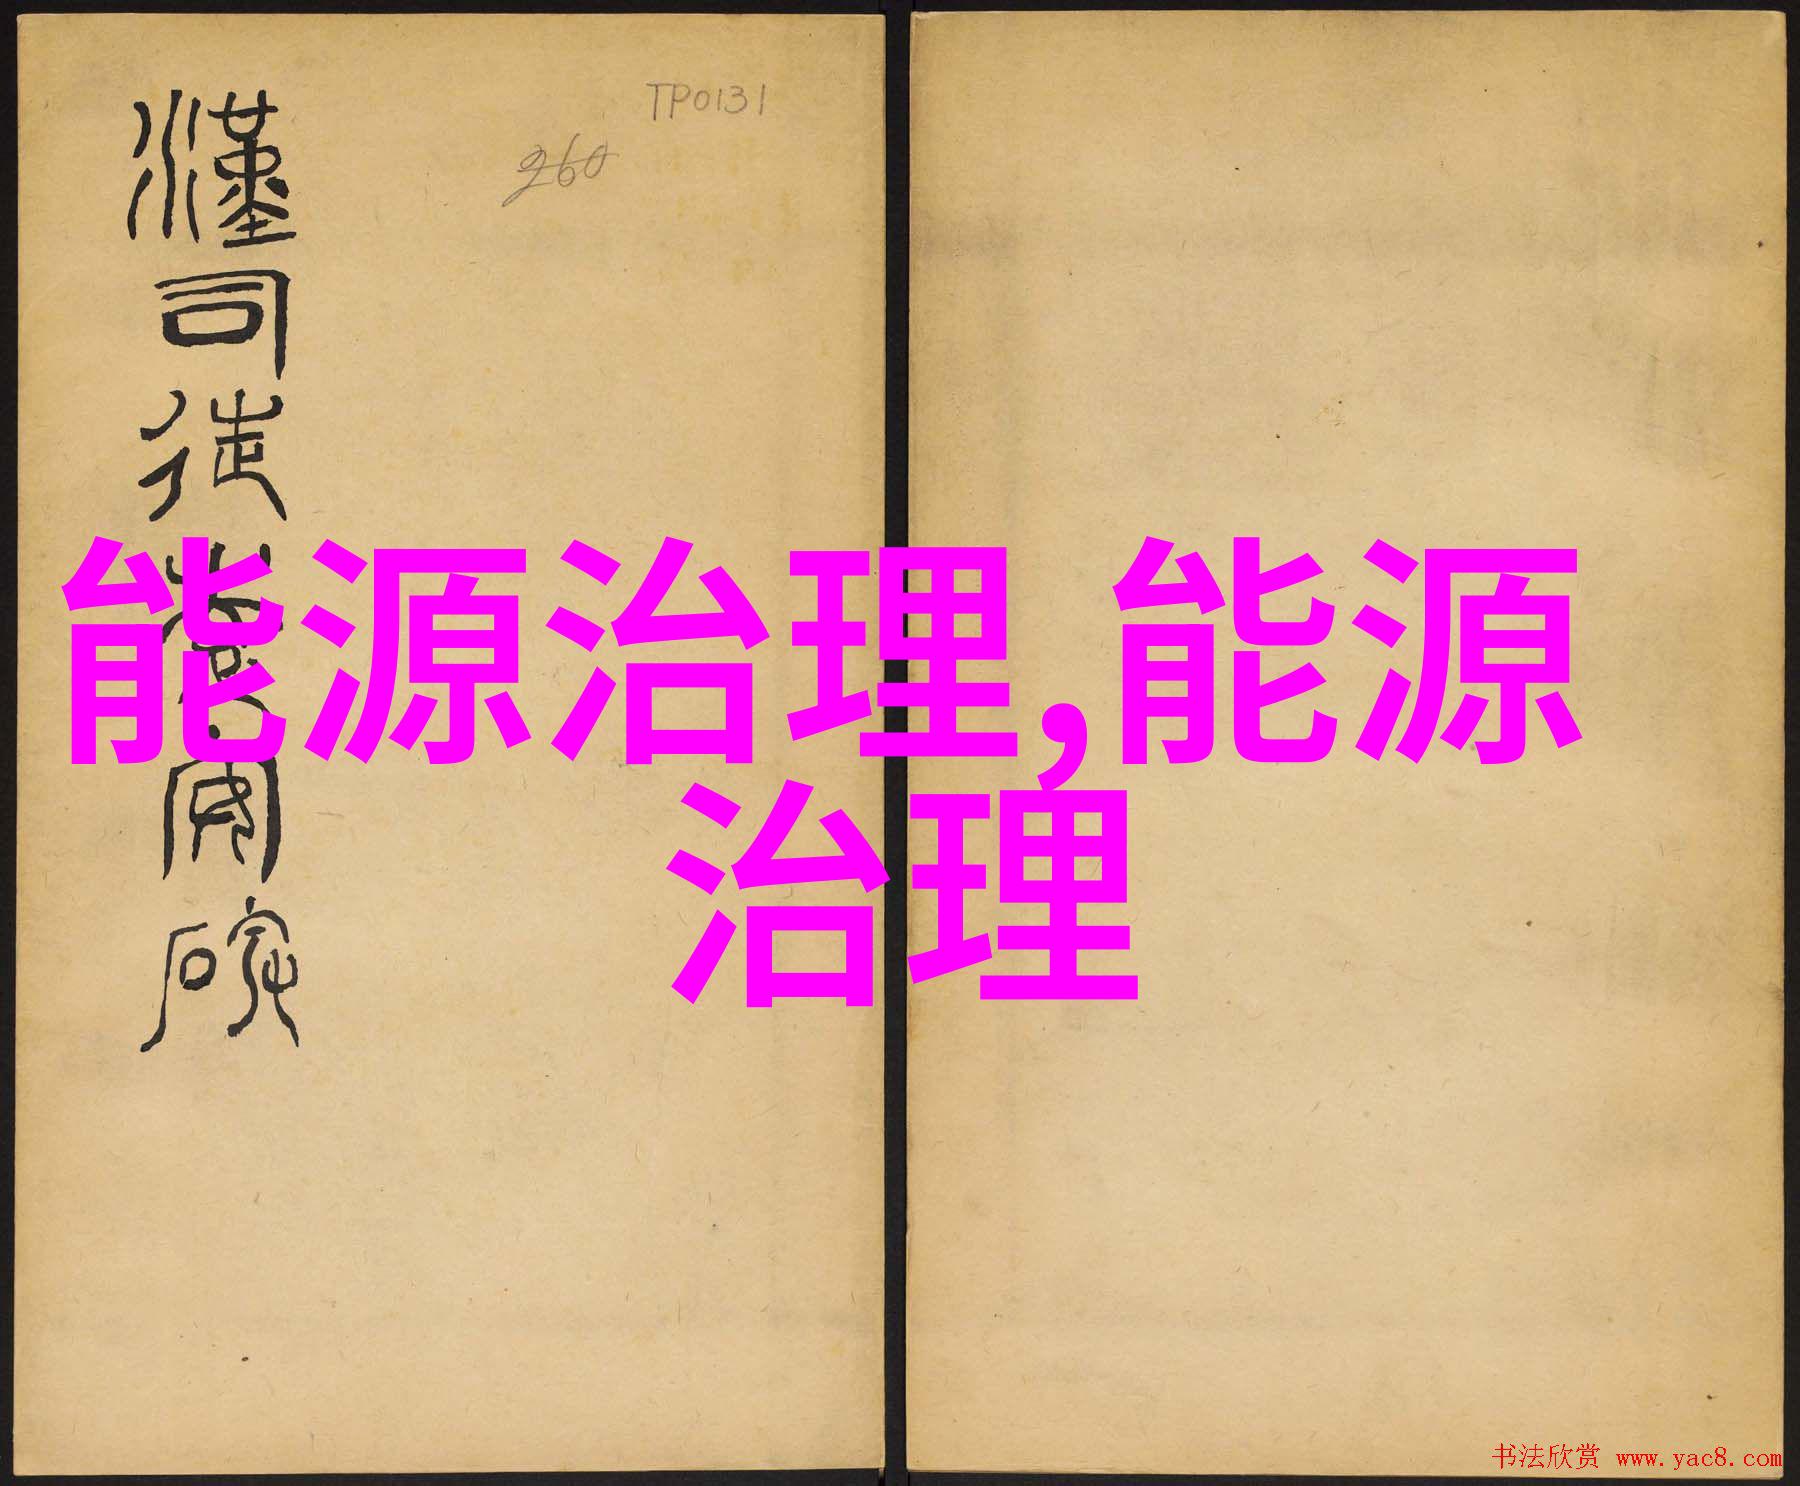 TP0131
260
漢司徒袁安碑
能源治理,能源
治理
书法欣赏 www.yac8.com